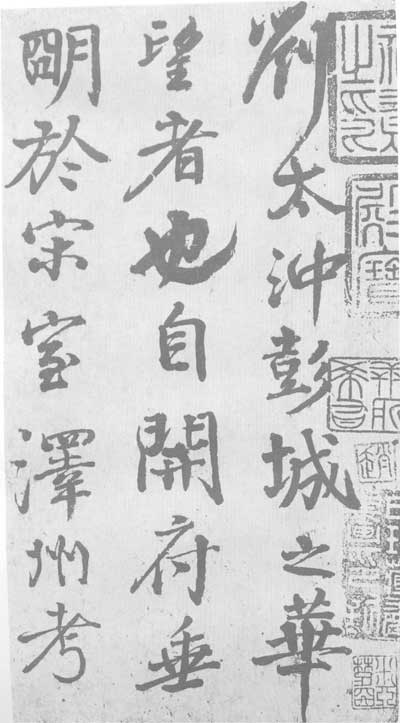 劉太沖彭城之華
望者也自開府垂
朙於宋室澤州考